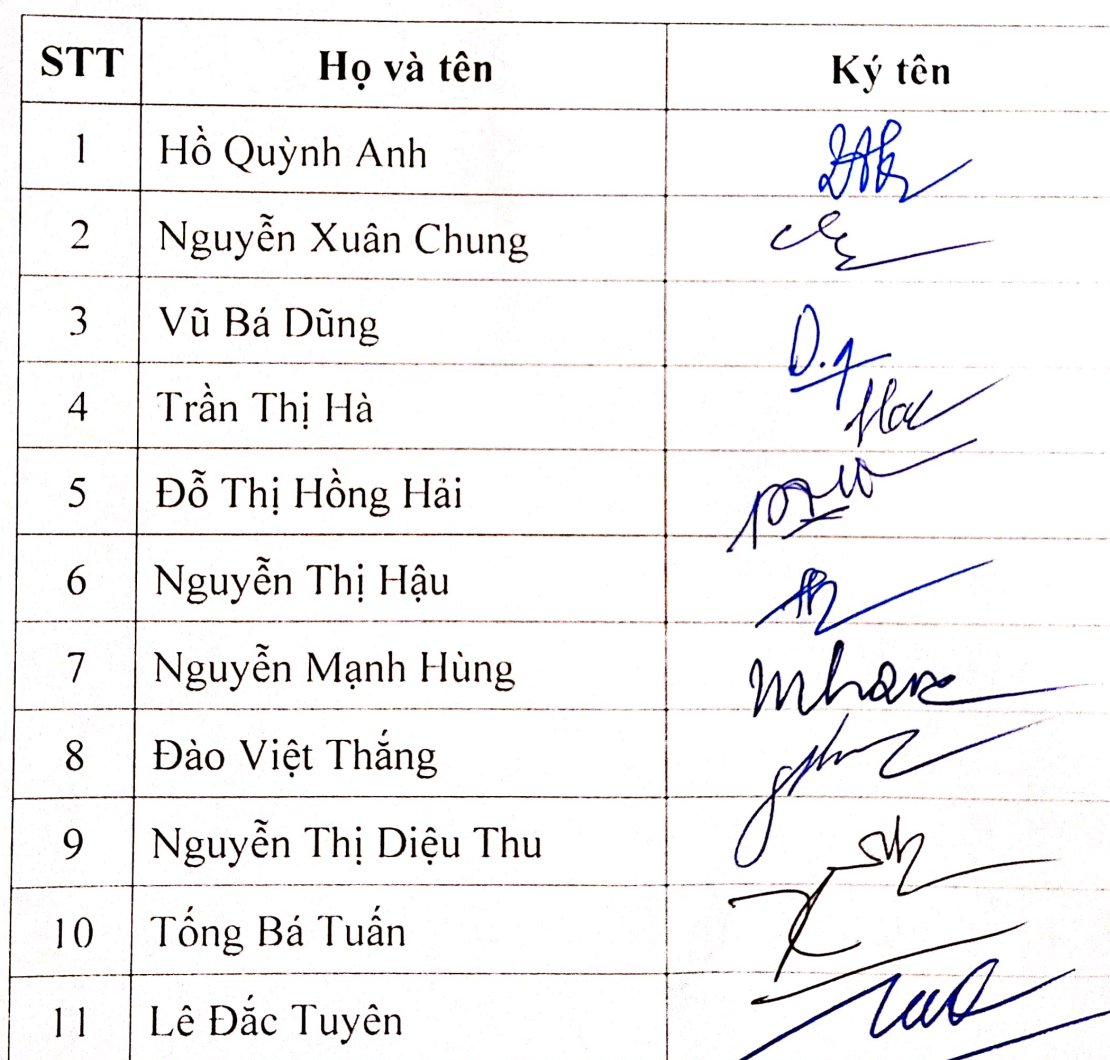 STT Họ và tên Ký tên
1 Hồ Quỳnh Anh
2 Nguyễn Xuân Chung
3 Vũ Bá Dũng
4 Trần Thị Hà
5 Đỗ Thị Hồng Hải
6 Nguyễn Thị Hậu
7 Nguyễn Mạnh Hùng
8 Đào Việt Thắng
9 Nguyễn Thị Diệu Thu
10 Tống Bá Tuấn
11 Lê Đắc Tuyên